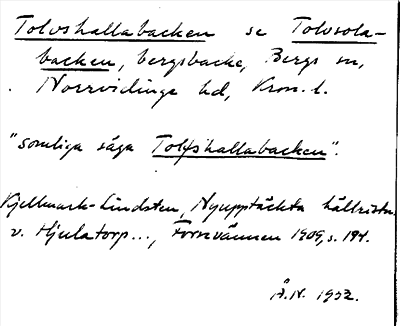 Tolvshallabacken se Tolvsola-
backen, bergsbacke, Bergs sn,
Norrvidinge hd, Kron. l.
"somliga säga Tolfshallabacken".
Kjellmark-Lindsten, Nyupptäckta hällristn.
v. Hjulatorp..., Fornvännen 1909, s. 194.
Å.H. 1952.